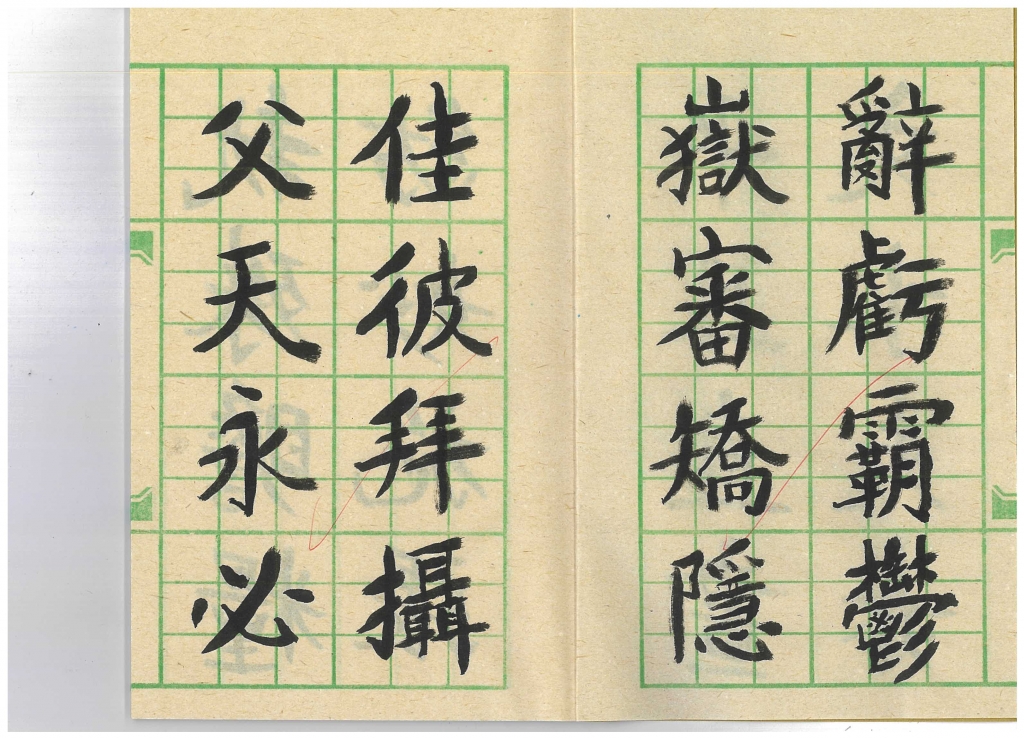 辭虧霸鬱
嶽審矯隱
佳彼拜攝
父天永必